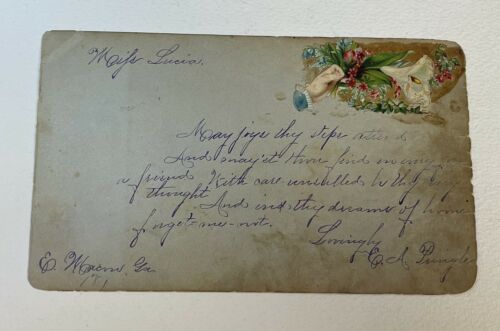 Miss Lucia.
May joys thy steps attend
And may'st thou find in every
a friend. With care unsullied be thy every
thought And and thy dreams of home
forget-me-not.
Lovingly
E. A. Pringle
E. Macon, Ga